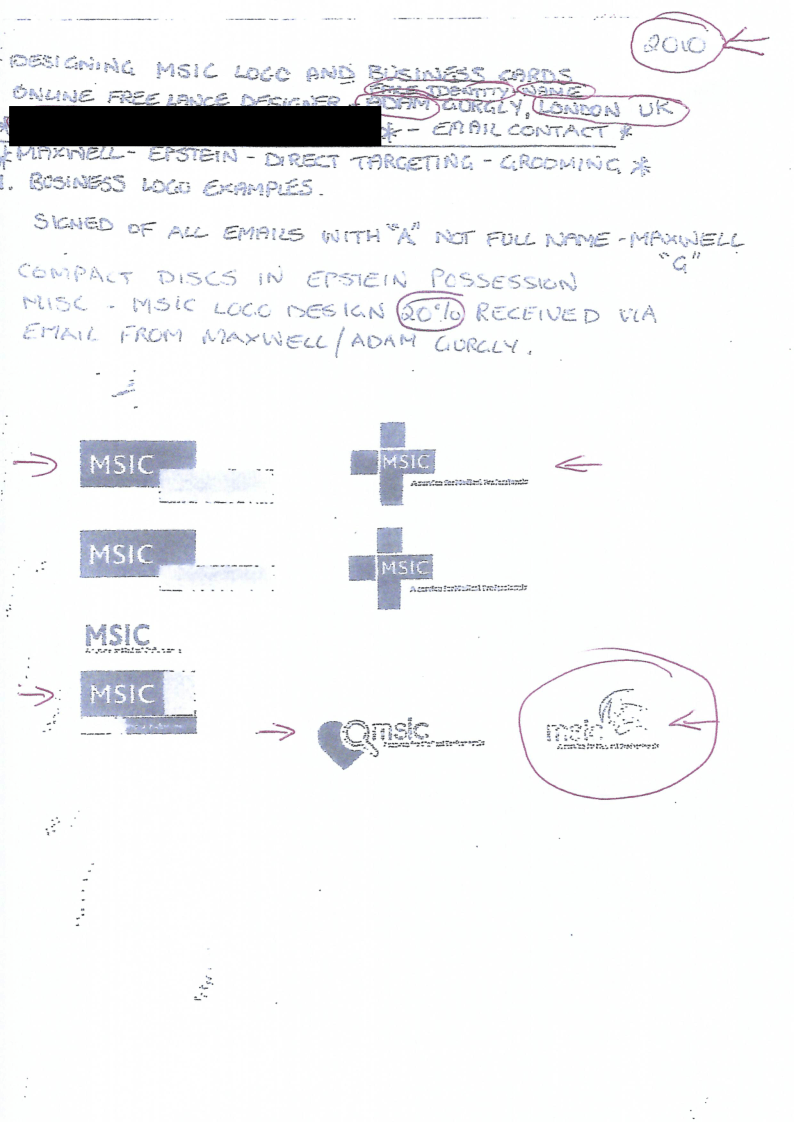 2010
DESIGNING MSIC LOGO AND BUSINESS CARDS
FAKE IDENTITY NAME
ONLINE FREE LANCE DESIGNER. ADAM GURGLY, LONDON UK
* * - EMAIL CONTACT *
* MAXWELL - EPSTEIN - DIRECT TARGETING - GROOMING *
1. BUSINESS LOGO EXAMPLES.
SIGNED OF ALL EMAILS WITH "A" NOT FULL NAME - MAXWELL
"G"
COMPACT DISCS IN EPSTEIN POSSESSION
MISC - MSIC LOGO DESIGN 20% RECEIVED VIA
EMAIL FROM MAXWELL/ADAM GURGLY.
MSIC
MSIC
MSIC
MSIC
MSIC
MSIC
msic
msic